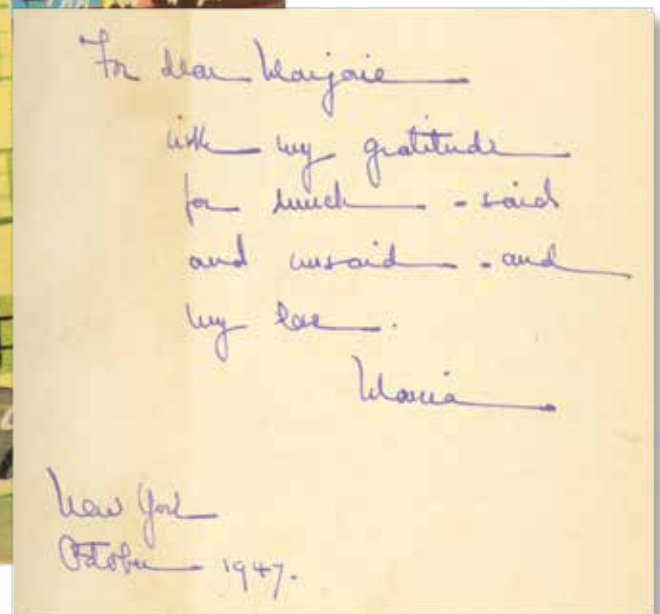 For dear Marjorie
with my gratitude
for much - said
and unsaid - and
my love.
Maria
New York
October 1947.